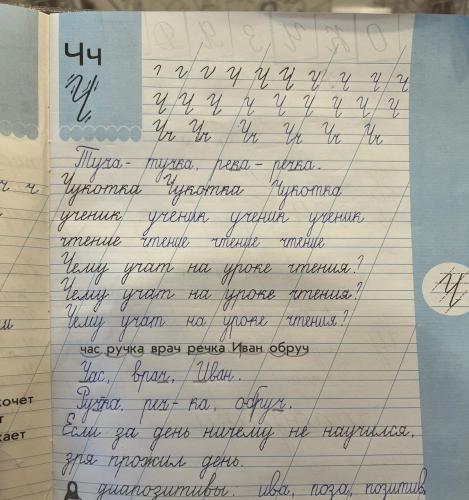 Чч
Ч
Ч Ч Ч Ч Ч Ч Ч
Ч Ч Ч Ч Ч Ч Ч Ч Ч
Чч Чч Чч Чч Чч Чч
Туча - тучка, река - речка.
Чукотка Чукотка Чукотка
ученик ученик ученик ученик
чтение чтение чтение чтение
Чему учат на уроке чтения?
Чему учат на уроке чтения?
Чему учат на уроке чтения?
час ручка врач речка Иван обруч
Час, врач, Иван.
Ручка, реч-ка, обруч.
Если за день ничему не научился,
зря прожил день.
диапозитивы. ива, поза, позитив
ч ч
Ч
хочет